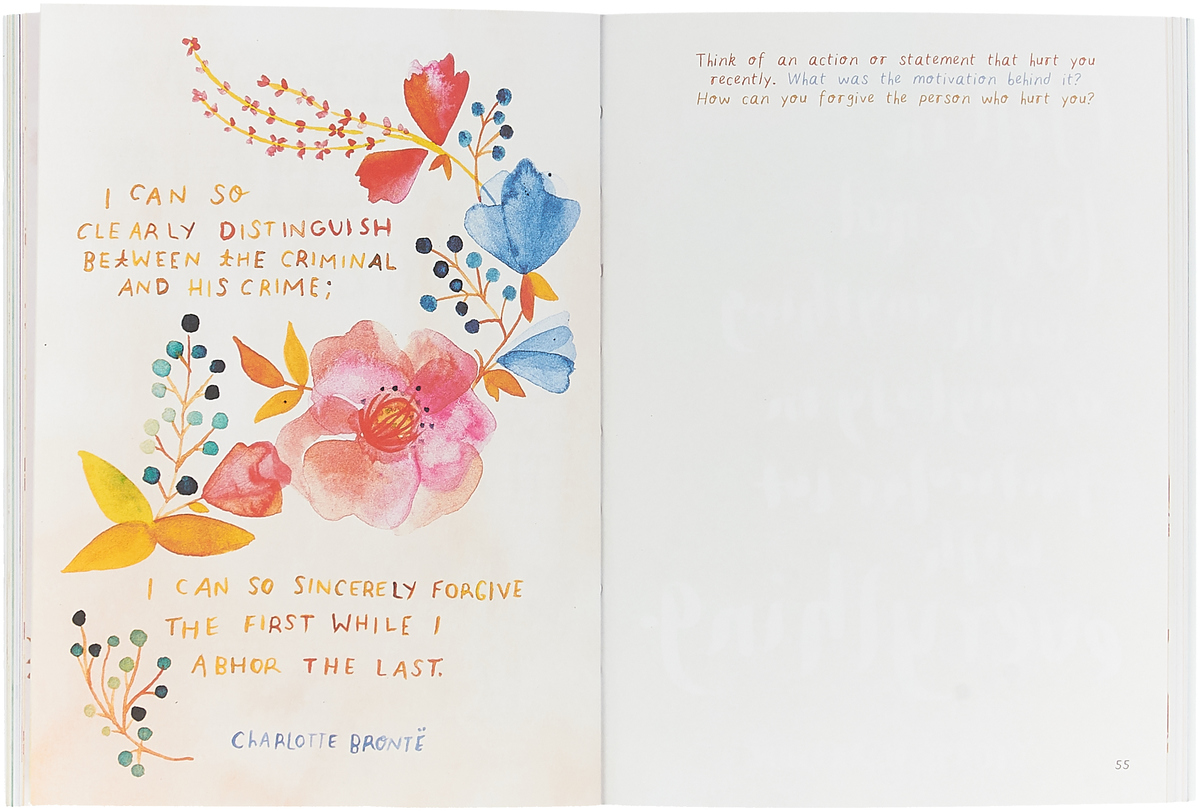 I CAN SO
CLEARLY DISTINGUISH
BETWEEN THE CRIMINAL
AND HIS CRIME;
I CAN SO SINCERELY FORGIVE
THE FIRST WHILE I
ABHOR THE LAST.
CHARLOTTE BRONTË
Think of an action or statement that hurt you
recently. What was the motivation behind it?
How can you forgive the person who hurt you?
55